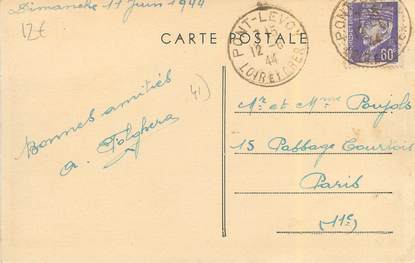 Dimanche 11 Juin 1944
12€
CARTE POSTALE
PONT-LEVOY
12 -6
44
LOIR ET CHER
80
41
Bonnes amitiés
a. Polghera
Mr et Mme Poujols
15 Passage Courtois
Paris
(11e)